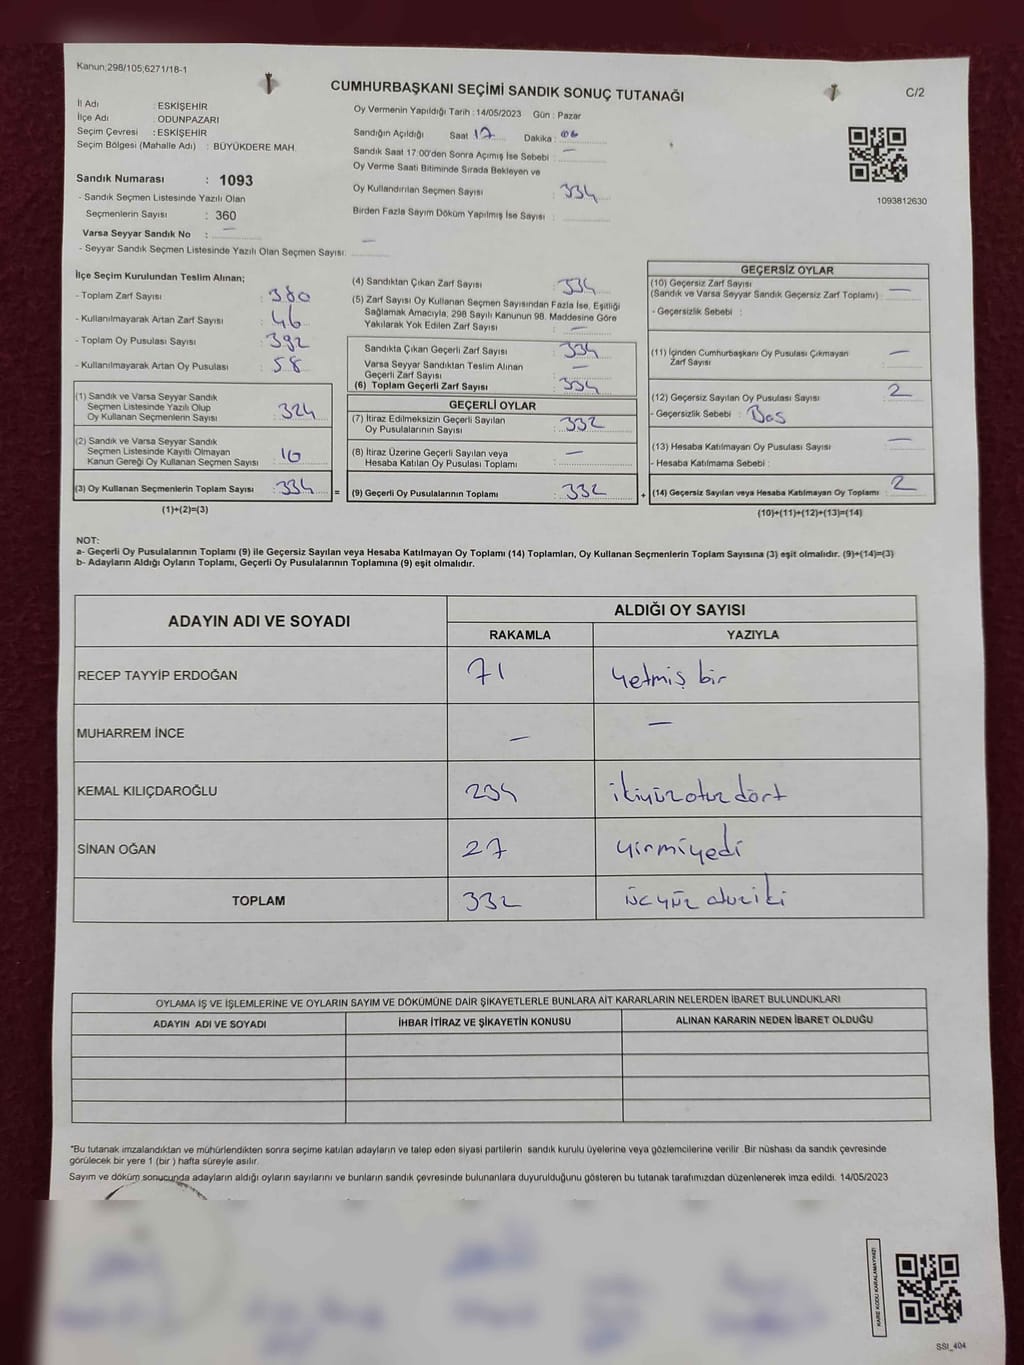 Kanun;298/105;6271/18-1
CUMHURBAŞKANI SEÇİMİ SANDIK SONUÇ TUTANAĞI
C/2
İl Adı : ESKİŞEHİR
İlçe Adı : ODUNPAZARI
Seçim Çevresi : ESKİŞEHİR
Seçim Bölgesi (Mahalle Adı) : BÜYÜKDERE MAH.
Sandık Numarası : 1093
- Sandık Seçmen Listesinde Yazılı Olan
Seçmenlerin Sayısı : 360
Varsa Seyyar Sandık No : —
- Seyyar Sandık Seçmen Listesinde Yazılı Olan Seçmen Sayısı: —
Oy Vermenin Yapıldığı Tarih : 14/05/2023 Gün : Pazar
Sandığın Açıldığı Saat 17 Dakika : 06
Sandık Saat 17:00'den Sonra Açımış İse Sebebi : —
Oy Verme Saati Bitiminde Sırada Bekleyen ve
Oy Kullandırılan Seçmen Sayısı : 334
Birden Fazla Sayım Döküm Yapılmış İse Sayısı :
1093812630
İlçe Seçim Kurulundan Teslim Alınan;
- Toplam Zarf Sayısı : 380
- Kullanılmayarak Artan Zarf Sayısı : 46
- Toplam Oy Pusulası Sayısı : 392
- Kullanılmayarak Artan Oy Pusulası : 58
(1) Sandık ve Varsa Seyyar Sandık
Seçmen Listesinde Yazılı Olup
Oy Kullanan Seçmenlerin Sayısı : 324
(2) Sandık ve Varsa Seyyar Sandık
Seçmen Listesinde Kayıtlı Olmayan
Kanun Gereği Oy Kullanan Seçmen Sayısı : 10
(3) Oy Kullanan Seçmenlerin Toplam Sayısı : 334
(1)+(2)=(3)
(4) Sandıktan Çıkan Zarf Sayısı : 334
(5) Zarf Sayısı Oy Kullanan Seçmen Sayısından Fazla İse, Eşitliği
Sağlamak Amacıyla, 298 Sayılı Kanunun 98. Maddesine Göre
Yakılarak Yok Edilen Zarf Sayısı : —
Sandıkta Çıkan Geçerli Zarf Sayısı : 334
Varsa Seyyar Sandıktan Teslim Alınan
Geçerli Zarf Sayısı : —
(6) Toplam Geçerli Zarf Sayısı : 334
GEÇERLİ OYLAR
(7) İtiraz Edilmeksizin Geçerli Sayılan
Oy Pusulalarının Sayısı : 332
(8) İtiraz Üzerine Geçerli Sayılan veya
Hesaba Katılan Oy Pusulası Toplamı : —
= (9) Geçerli Oy Pusulalarının Toplamı : 332
GEÇERSİZ OYLAR
(10) Geçersiz Zarf Sayısı
(Sandık ve Varsa Seyyar Sandık Geçersiz Zarf Toplamı) : —
- Geçersizlik Sebebi :
(11) İçinden Cumhurbaşkanı Oy Pusulası Çıkmayan
Zarf Sayısı : —
(12) Geçersiz Sayılan Oy Pusulası Sayısı : 2
- Geçersizlik Sebebi : Boş
(13) Hesaba Katılmayan Oy Pusulası Sayısı : —
- Hesaba Katılmama Sebebi :
+ (14) Geçersiz Sayılan veya Hesaba Katılmayan Oy Toplamı : 2
(10)+(11)+(12)+(13)=(14)
NOT:
a- Geçerli Oy Pusulalarının Toplamı (9) ile Geçersiz Sayılan veya Hesaba Katılmayan Oy Toplamı (14) Toplamları, Oy Kullanan Seçmenlerin Toplam Sayısına (3) eşit olmalıdır. (9)+(14)=(3)
b- Adayların Aldığı Oyların Toplamı, Geçerli Oy Pusulalarının Toplamına (9) eşit olmalıdır.
ADAYIN ADI VE SOYADI ALDIĞI OY SAYISI
RAKAMLA YAZIYLA
RECEP TAYYİP ERDOĞAN 71 Yetmiş bir
MUHARREM İNCE — —
KEMAL KILIÇDAROĞLU 234 ikiyüz otuz dört
SİNAN OĞAN 27 yirmiyedi
TOPLAM 332 üçyüz otuziki
OYLAMA İŞ VE İŞLEMLERİNE VE OYLARIN SAYIM VE DÖKÜMÜNE DAİR ŞİKAYETLERLE BUNLARA AİT KARARLARIN NELERDEN İBARET BULUNDUKLARI
ADAYIN ADI VE SOYADI İHBAR İTİRAZ VE ŞİKAYETİN KONUSU ALINAN KARARIN NEDEN İBARET OLDUĞU
"Bu tutanak imzalandıktan ve mühürlendikten sonra seçime katılan adayların ve talep eden siyasi partilerin sandık kurulu üyelerine veya gözlemcilerine verilir. Bir nüshası da sandık çevresinde
görülecek bir yere 1 (bir ) hafta süreyle asılır.
Sayım ve döküm sonucunda adayların aldığı oyların sayılarını ve bunların sandık çevresinde bulunanlara duyurulduğunu gösteren bu tutanak tarafımızdan düzenlenerek imza edildi. 14/05/2023
KARE KODU KARALAMAYINIZ!
SSI_404